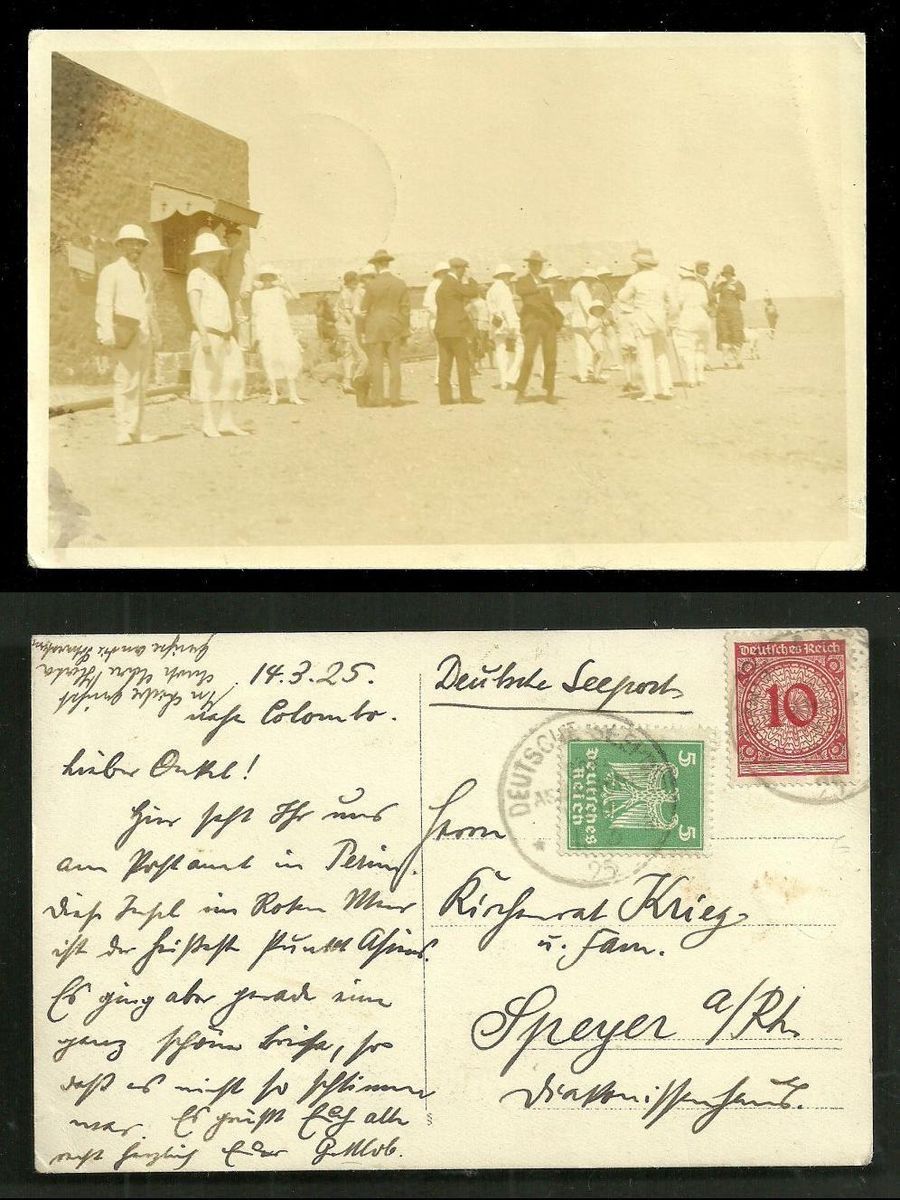 14.3.25.
nahe Colombo.
Lieber Onkel!
Hier seht Ihr uns
am Postamt in Perim.
Diese Insel im Roten Meer
ist der heißeste Punkt Asiens.
Es ging aber gerade eine
ganz schöne Brise, so
daß es nicht so schlimm
war. Es grüßt Euch alle
recht herzlich Euer Gottlob.
Deutsche Seepost
Deutsches Reich
10
5 5
Deutsches
Reich
DEUTSCHE
25
Herrn
Kirchenrat Krieg
u. Fam.
Speyer a/Rh.
Diakonissenhaus.